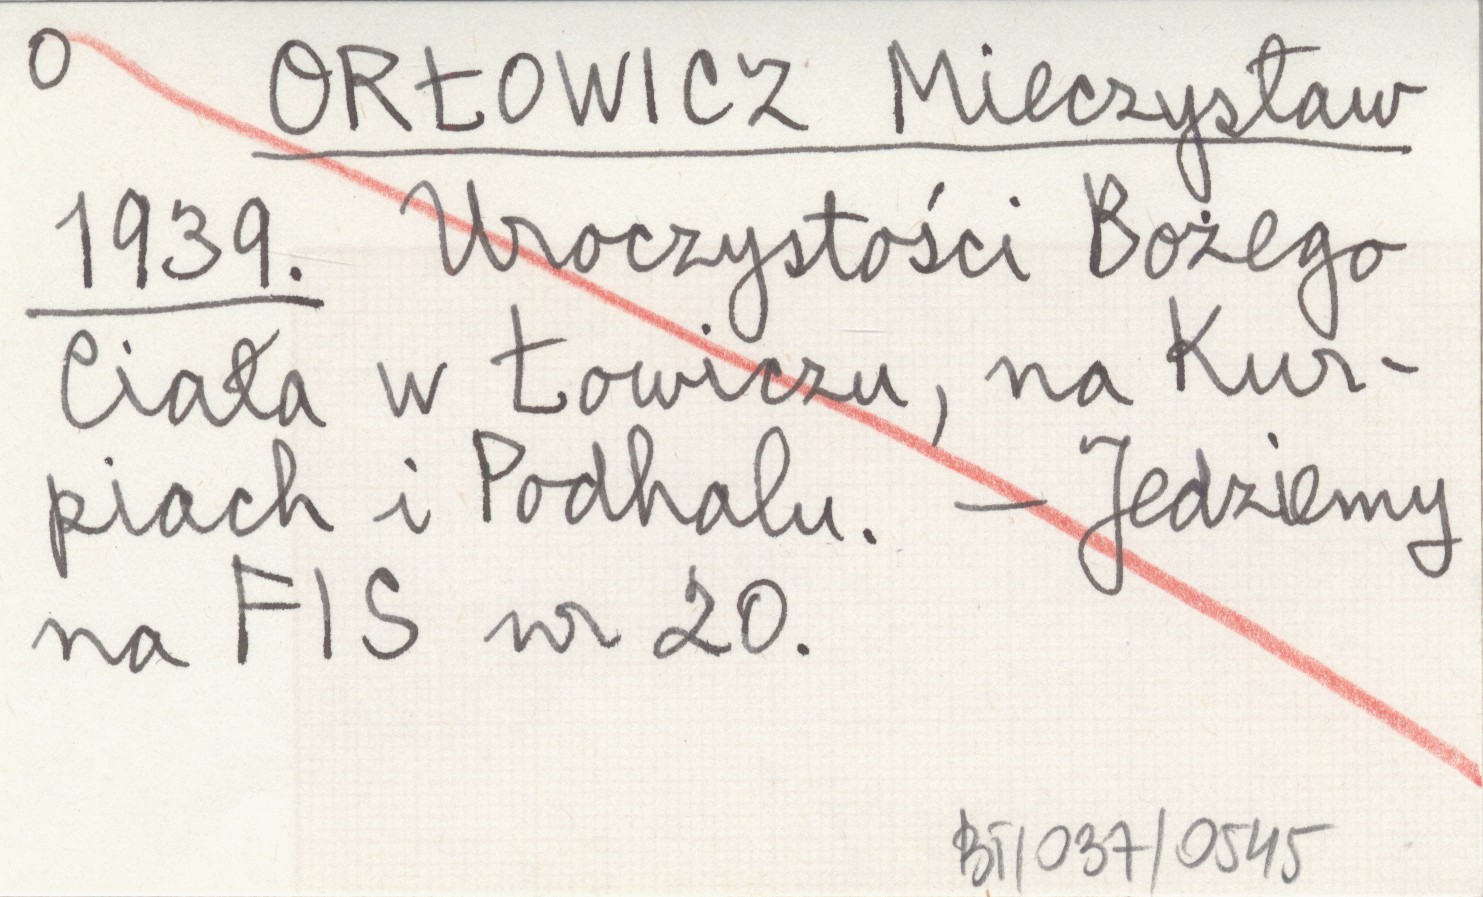 O ORŁOWICZ Mieczysław
1939. Uroczystości Bożego
Ciała w Łowiczu, na Kur-
piach i Podhalu. — Jedziemy
na FIS nr 20.
BT/037/0545